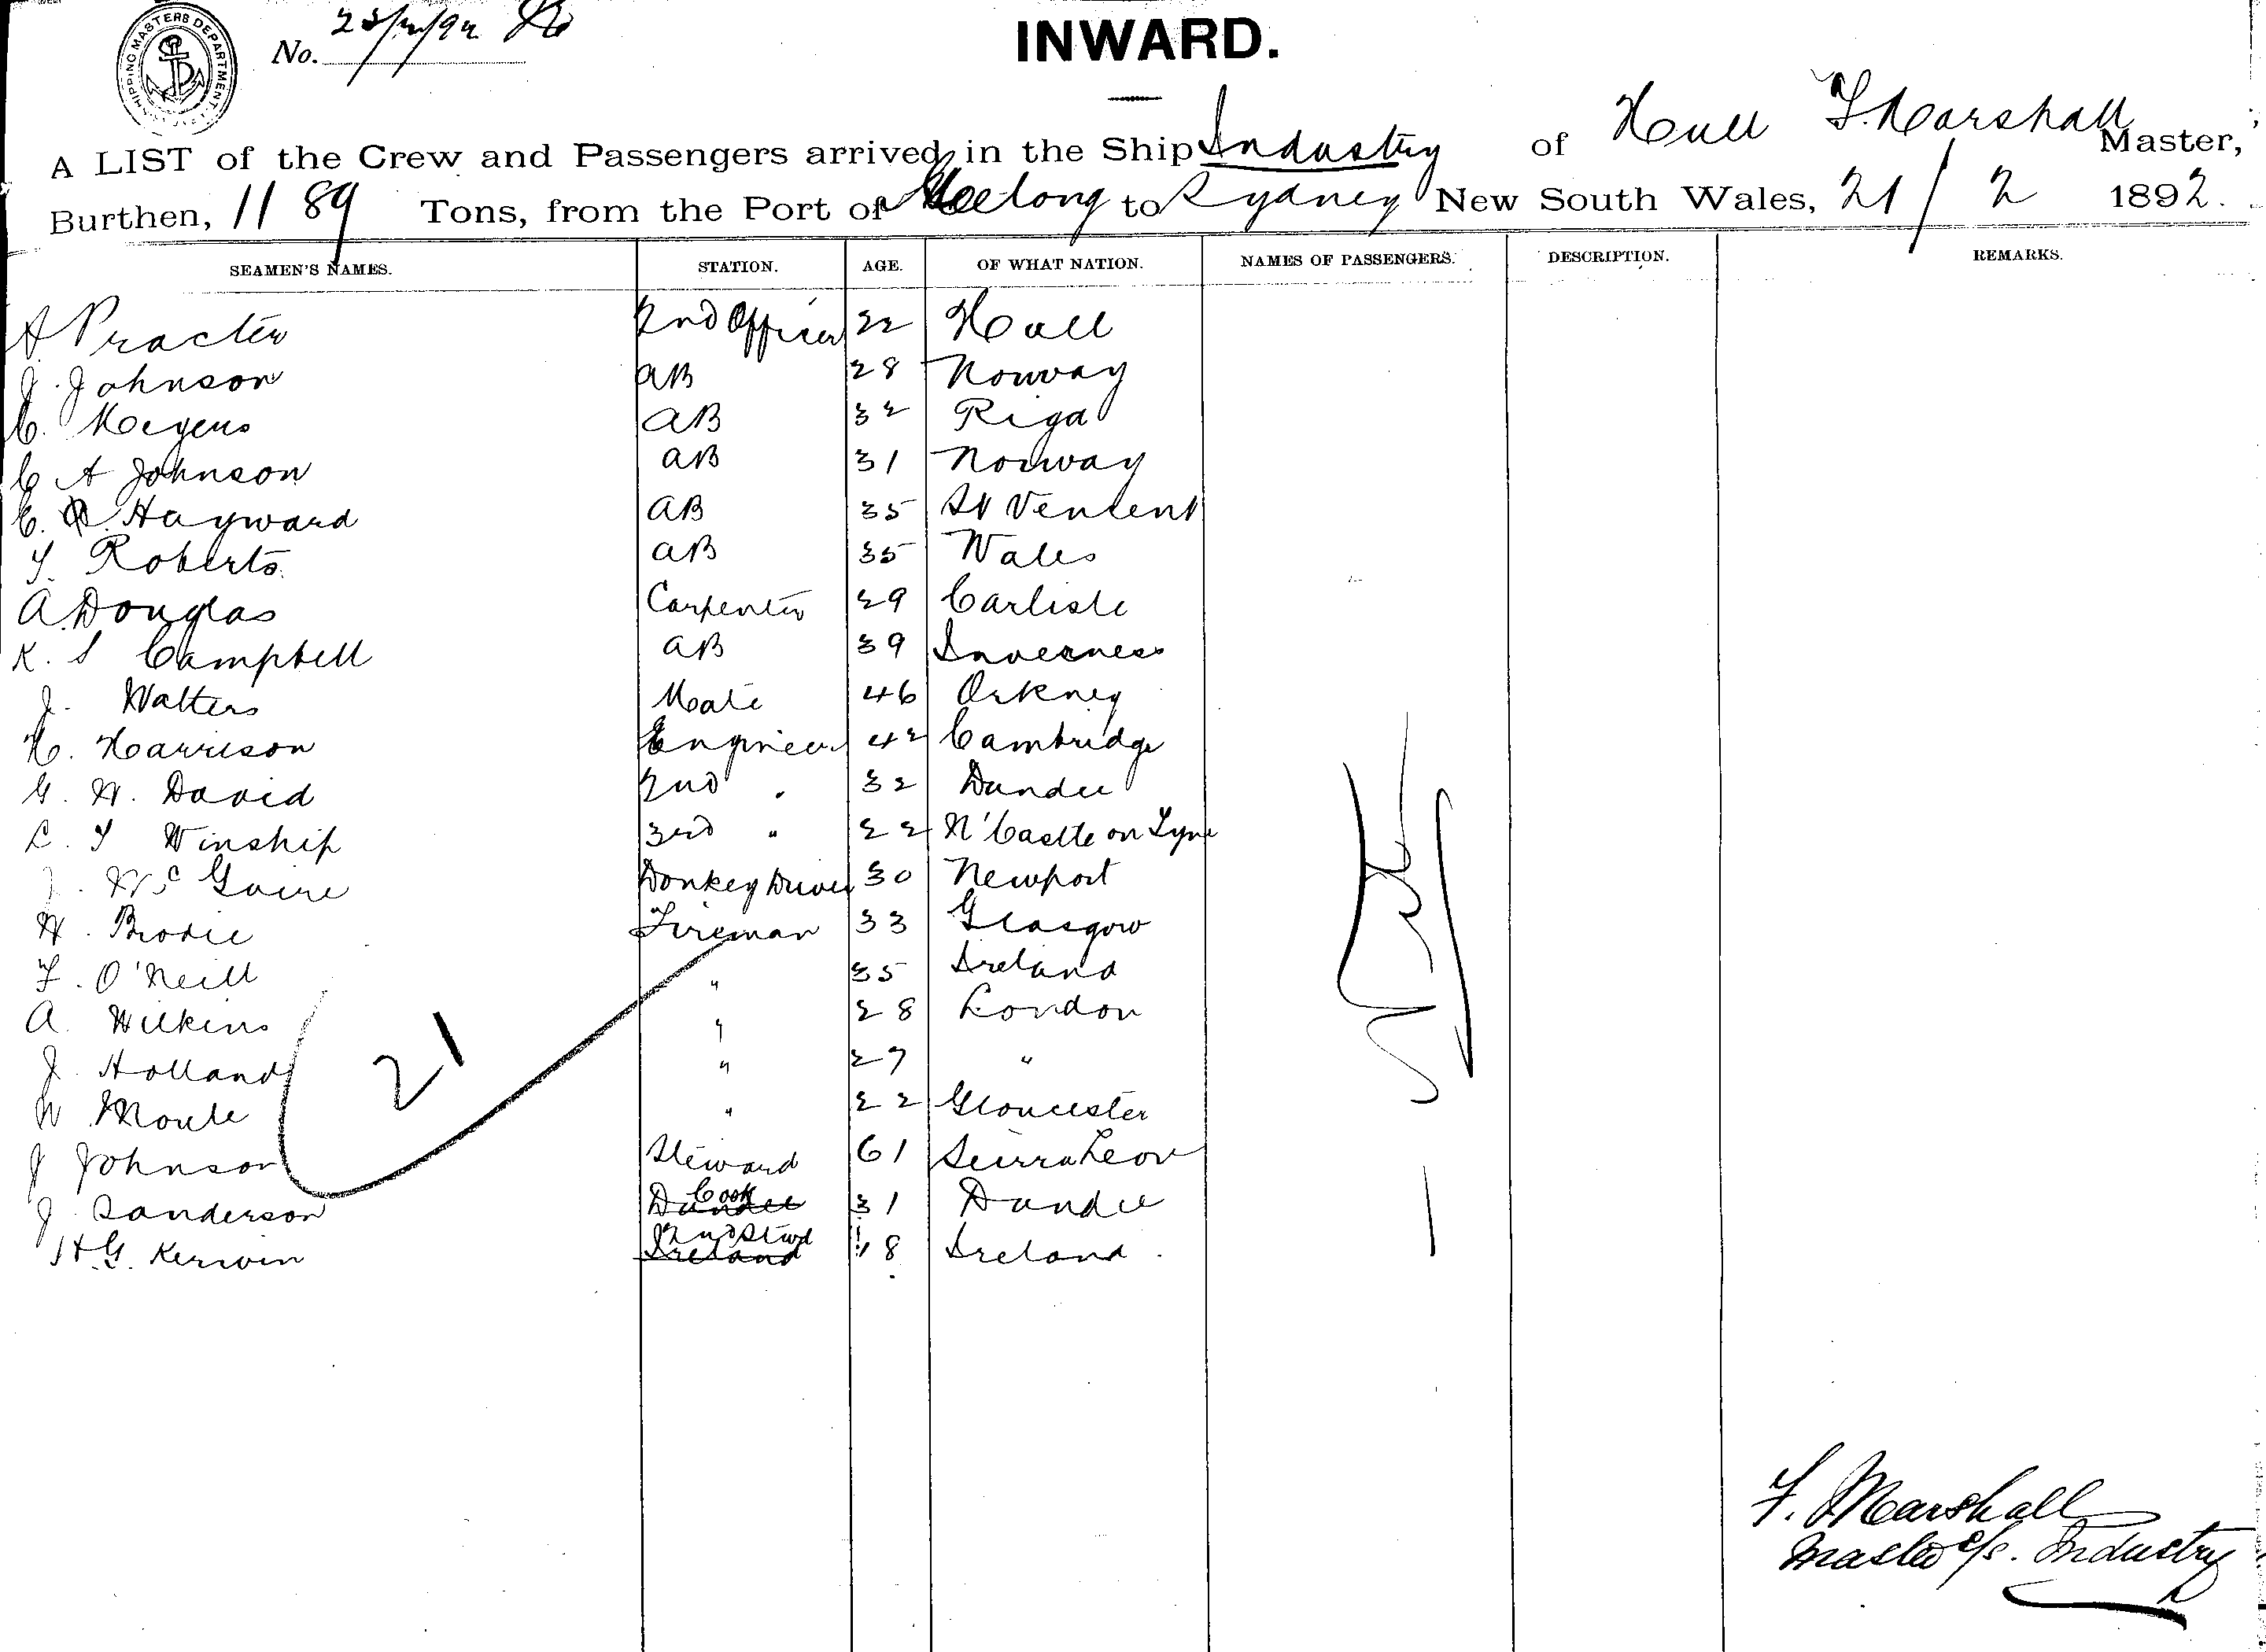 SHIPPING MASTERS DEPARTMENT
No. 23/2/92
INWARD.
A LIST of the Crew and Passengers arrived in the Ship Industry of Hull F. Marshall Master,
Burthen, 1189 Tons, from the Port of Geelong to Sydney New South Wales, 21/2 1892.
SEAMEN'S NAMES. STATION. AGE. OF WHAT NATION. NAMES OF PASSENGERS. DESCRIPTION. REMARKS.
A Procter 2nd Officer 22 Hull
J. Johnson AB 28 Norway
C. Meyens AB 32 Riga
C A Johnson AB 31 Norway
C. Hayward AB 35 St Venient
T. Roberts AB 35 Wales
A. Douglas Carpenter 29 Carlisle
K. S Campbell AB 39 Inverness
J. Walters Mate 46 Orkney
H. Harrison Engineer 42 Cambridge
G. W. David 2nd " 32 Dundee
C. T Winship 3rd " 22 N'Castle on Tyne
J. McGuire Donkey Driver 30 Newport
W. Brodie Fireman 33 Glasgow
F. O'Neill " 35 Ireland
A. Wilkins " 28 London
J. Holland " 27 "
W Moule " 22 Gloucester
J Johnson Steward 61 Seirra Leon
J. Sanderson Dundee Cook 31 Dundee
H.G. Kerwin Ireland 2nd Stwd 18 Ireland
21
F. Marshall
Master s/s. Industry